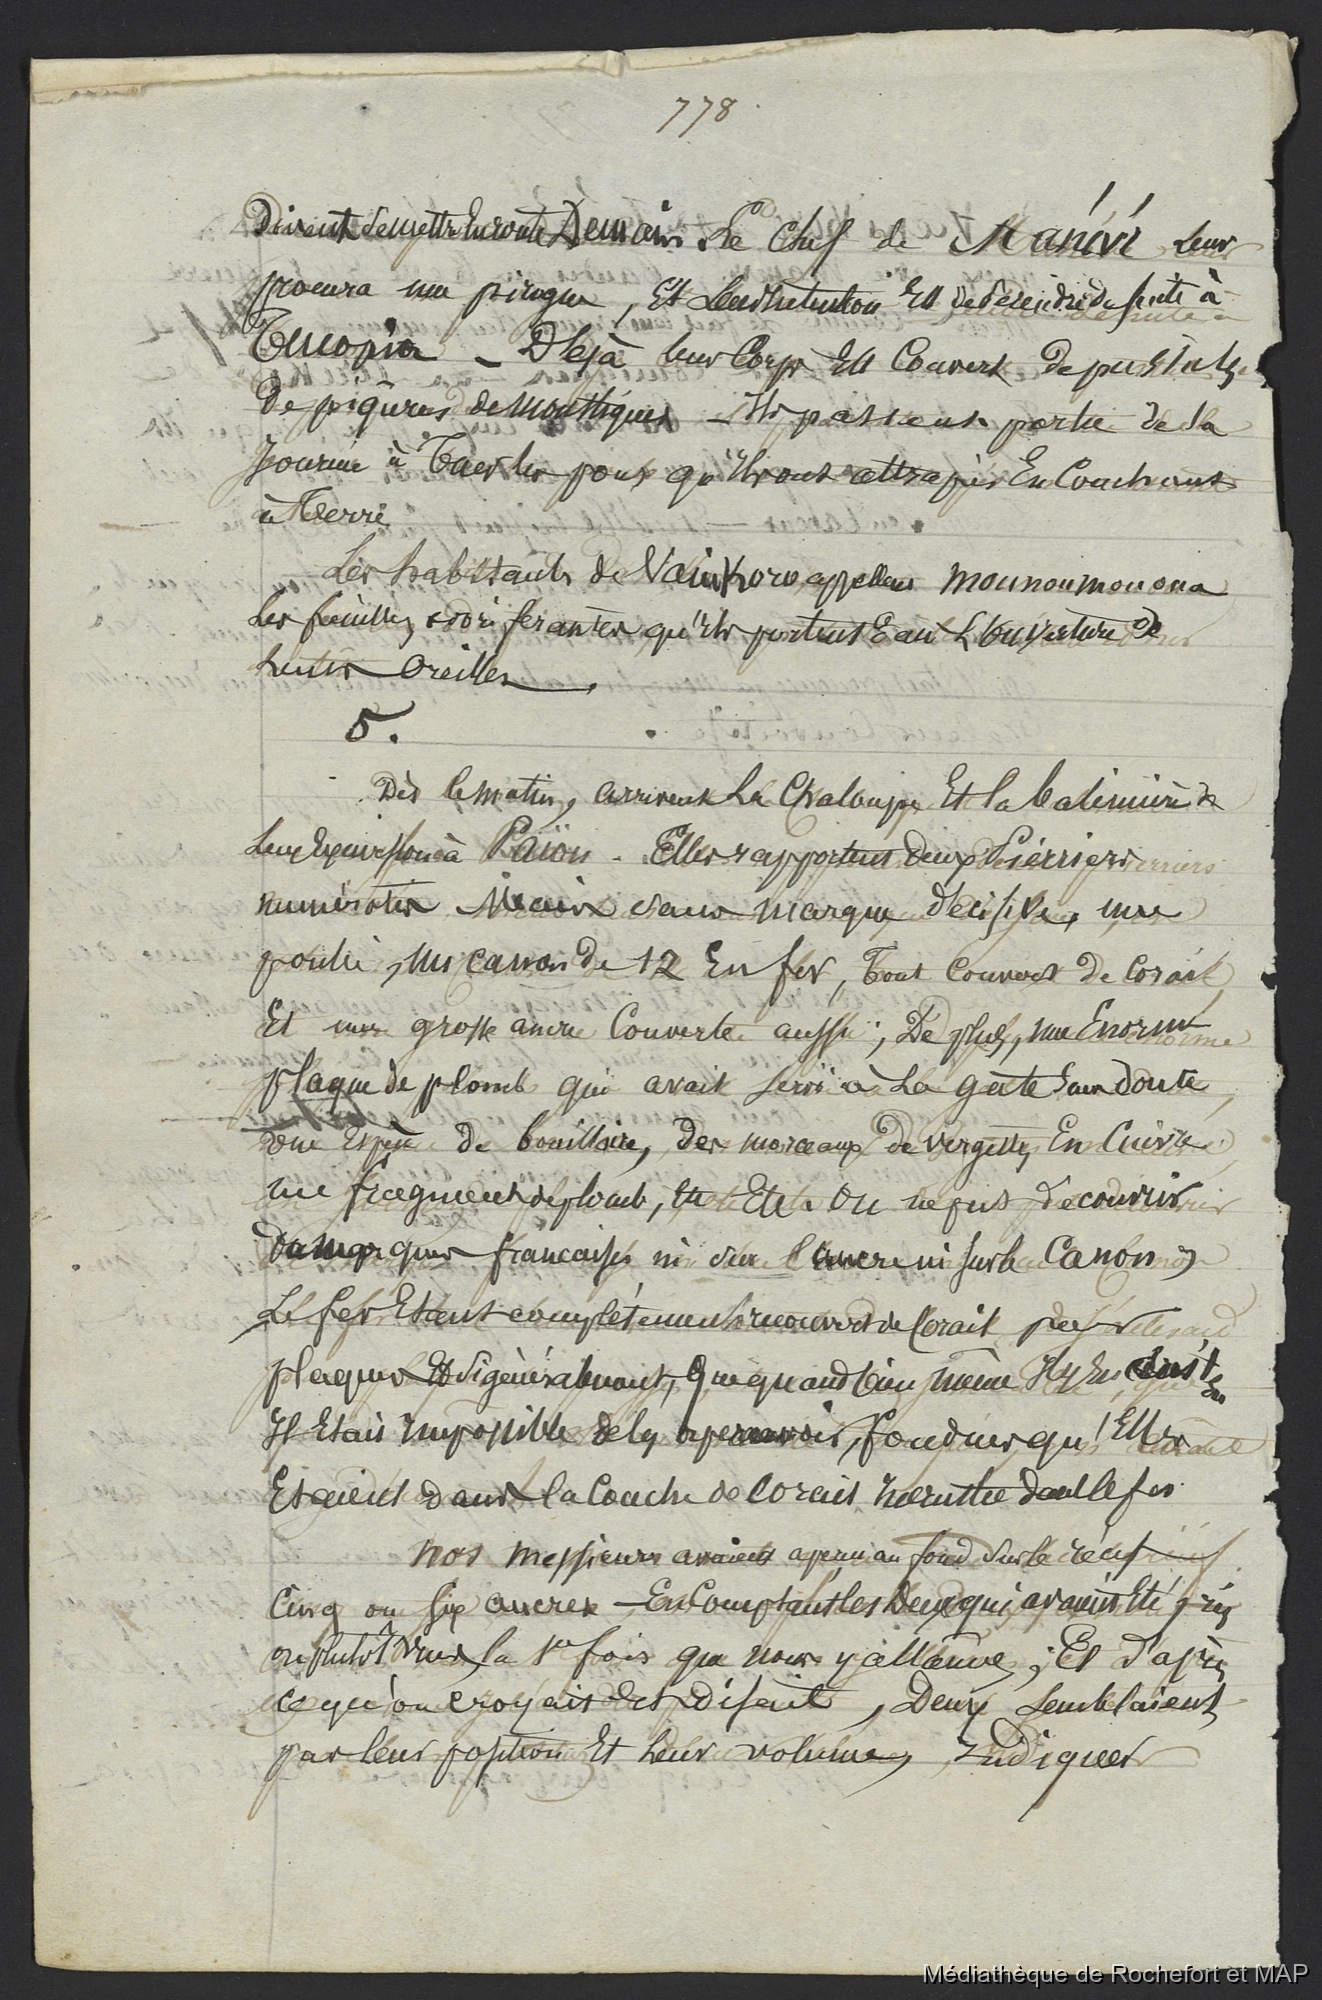 778
Doivent se mettre En route Demain. Le Chef de Manévé leur
procura une pirogue, Et leur intention Est de descendre de suite à
Tucopia - Déjà leur Corps Est Couvert de pustules
de piqûres de moustiques - ils passent partie de la
journée à Tuer les poux qu'ils ont attrapés En Couchant
à Terre
Les habitants de Vanikoro appellent mounoumouona
les feuilles odoriférantes qu'ils portent dans L'ouverture de
leurs Oreilles.
5.
Dès le matin, arrivent La Chaloupe Et la baleinière de
leur Expédition à Païou. Elles rapportent deux Pierriers
numérotés Mais sans marque décisive, une
poulie, un canon de 12 En fer, Tout Couvert de Corail
Et une grosse ancre Couverte aussi; De plus, une Enorme
plaque de plomb qui avait servi à La gatte sans doute,
une Espèce de bouilloire, des morceaux de vergettes En Cuivre
un fragment de plomb, Etc Etc. On ne put découvrir
de marques françaises ni sur l'ancre ni sur le Canon,
Le fer Etant complétement recouvert de Corail par
plaques Et si généralement, Que quand bien même Il y En eût Eu
Il Etait Impossible de les apercevoir, puisqu'Elles
Etaient dans la Couche de Corail incrustée dans le fer
nos messieurs avaient aperçu au fond sur le récif
Cinq ou six ancres - En Comptant les Deux qui avaient Eté prises
ou plutôt vues, la 1re fois que nous y allâmes; Et d'après
ce qu'on croyait des Disait, Deux semblaient,
par leur position Et leur volume, Indiquer
Médiathèque de Rochefort et MAP